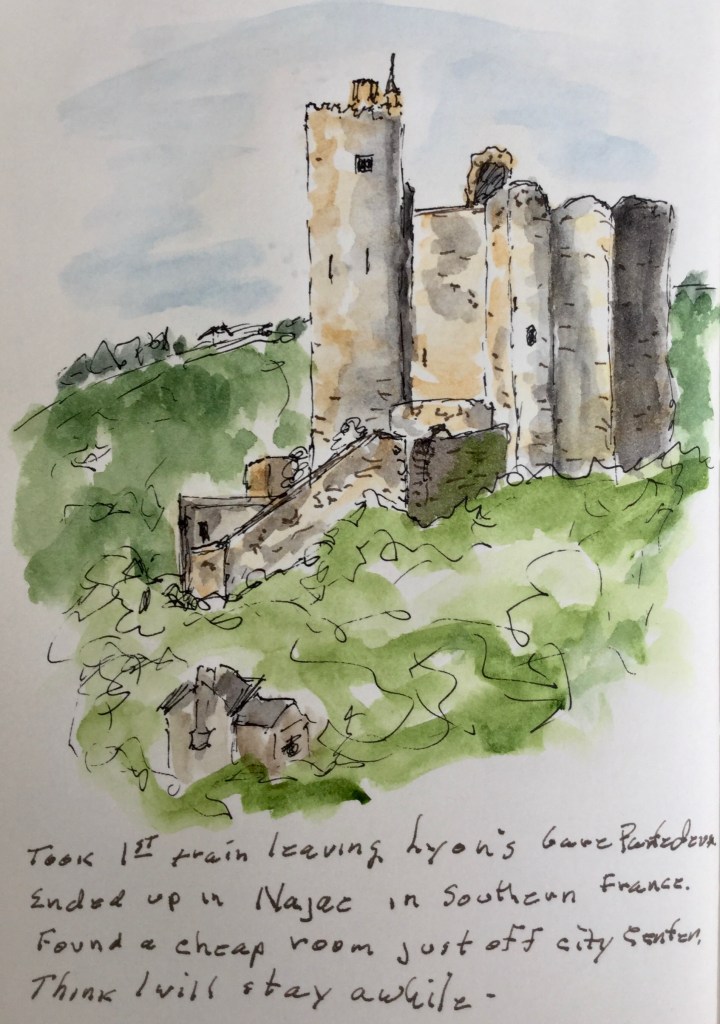 Took 1st train leaving Lyon's Gare
Ended up in Najac in Southern France.
Found a cheap room just off city center.
Think I will stay awhile -